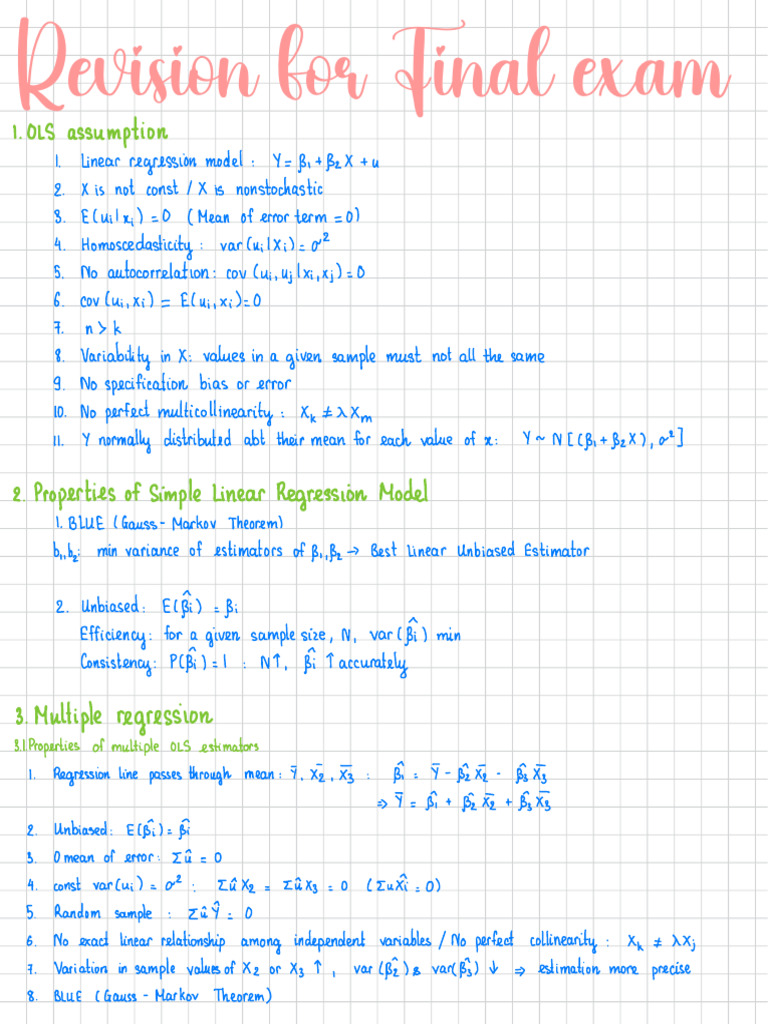 Revision for Final exam
1. OLS assumption
1. Linear regression model : Y = β₁ + β₂ X + u
2. X is not const / X is nonstochastic
3. E(uᵢ|xᵢ) = 0 (Mean of error term = 0)
4. Homoscedasticity : var(uᵢ|Xᵢ) = σ²
5. No autocorrelation : cov (uᵢ, uⱼ|xᵢ, xⱼ) = 0
6. cov(uᵢ, xᵢ) = E(uᵢ, xᵢ) = 0
7. n > k
8. Variability in X: values in a given sample must not all the same
9. No specification bias or error
10. No perfect multicollinearity : Xₖ ≠ λXₘ
11. Y normally distributed abt their mean for each value of x: Y ~ N [(β₁ + β₂X), σ²]
2. Properties of Simple Linear Regression Model
1. BLUE (Gauss - Markov Theorem)
b₁, b₂: min variance of estimators of β₁, β₂ → Best Linear Unbiased Estimator
2. Unbiased: E(β̂i) = βi
Efficiency: for a given sample size, N, var(β̂i) min
Consistency: P(β̂i) = 1 : N↑, β̂i ↑ accurately
3. Multiple regression
3.1. Properties of multiple OLS estimators
1. Regression line passes through mean: Ȳ, X̄₂, X̄₃ : β̂₁ = Ȳ - β̂₂X̄₂ - β̂₃X̄₃
⇒ Ȳ = β̂₁ + β̂₂X̄₂ + β̂₃X̄₃
2. Unbiased: E(β̂i) = β̂i
3. 0 mean of error: Σû = 0
4. const var(uᵢ) = σ² : ΣûX₂ = ΣûX₃ = 0 (ΣuX̂i = 0)
5. Random sample : ΣûŶ = 0
6. No exact linear relationship among independent variables / No perfect collinearity : Xₖ ≠ λXⱼ
7. Variation in sample values of X₂ or X₃ ↑, var(β̂₂) & var(β̂₃) ↓ ⇒ estimation more precise
8. BLUE (Gauss - Markov Theorem)